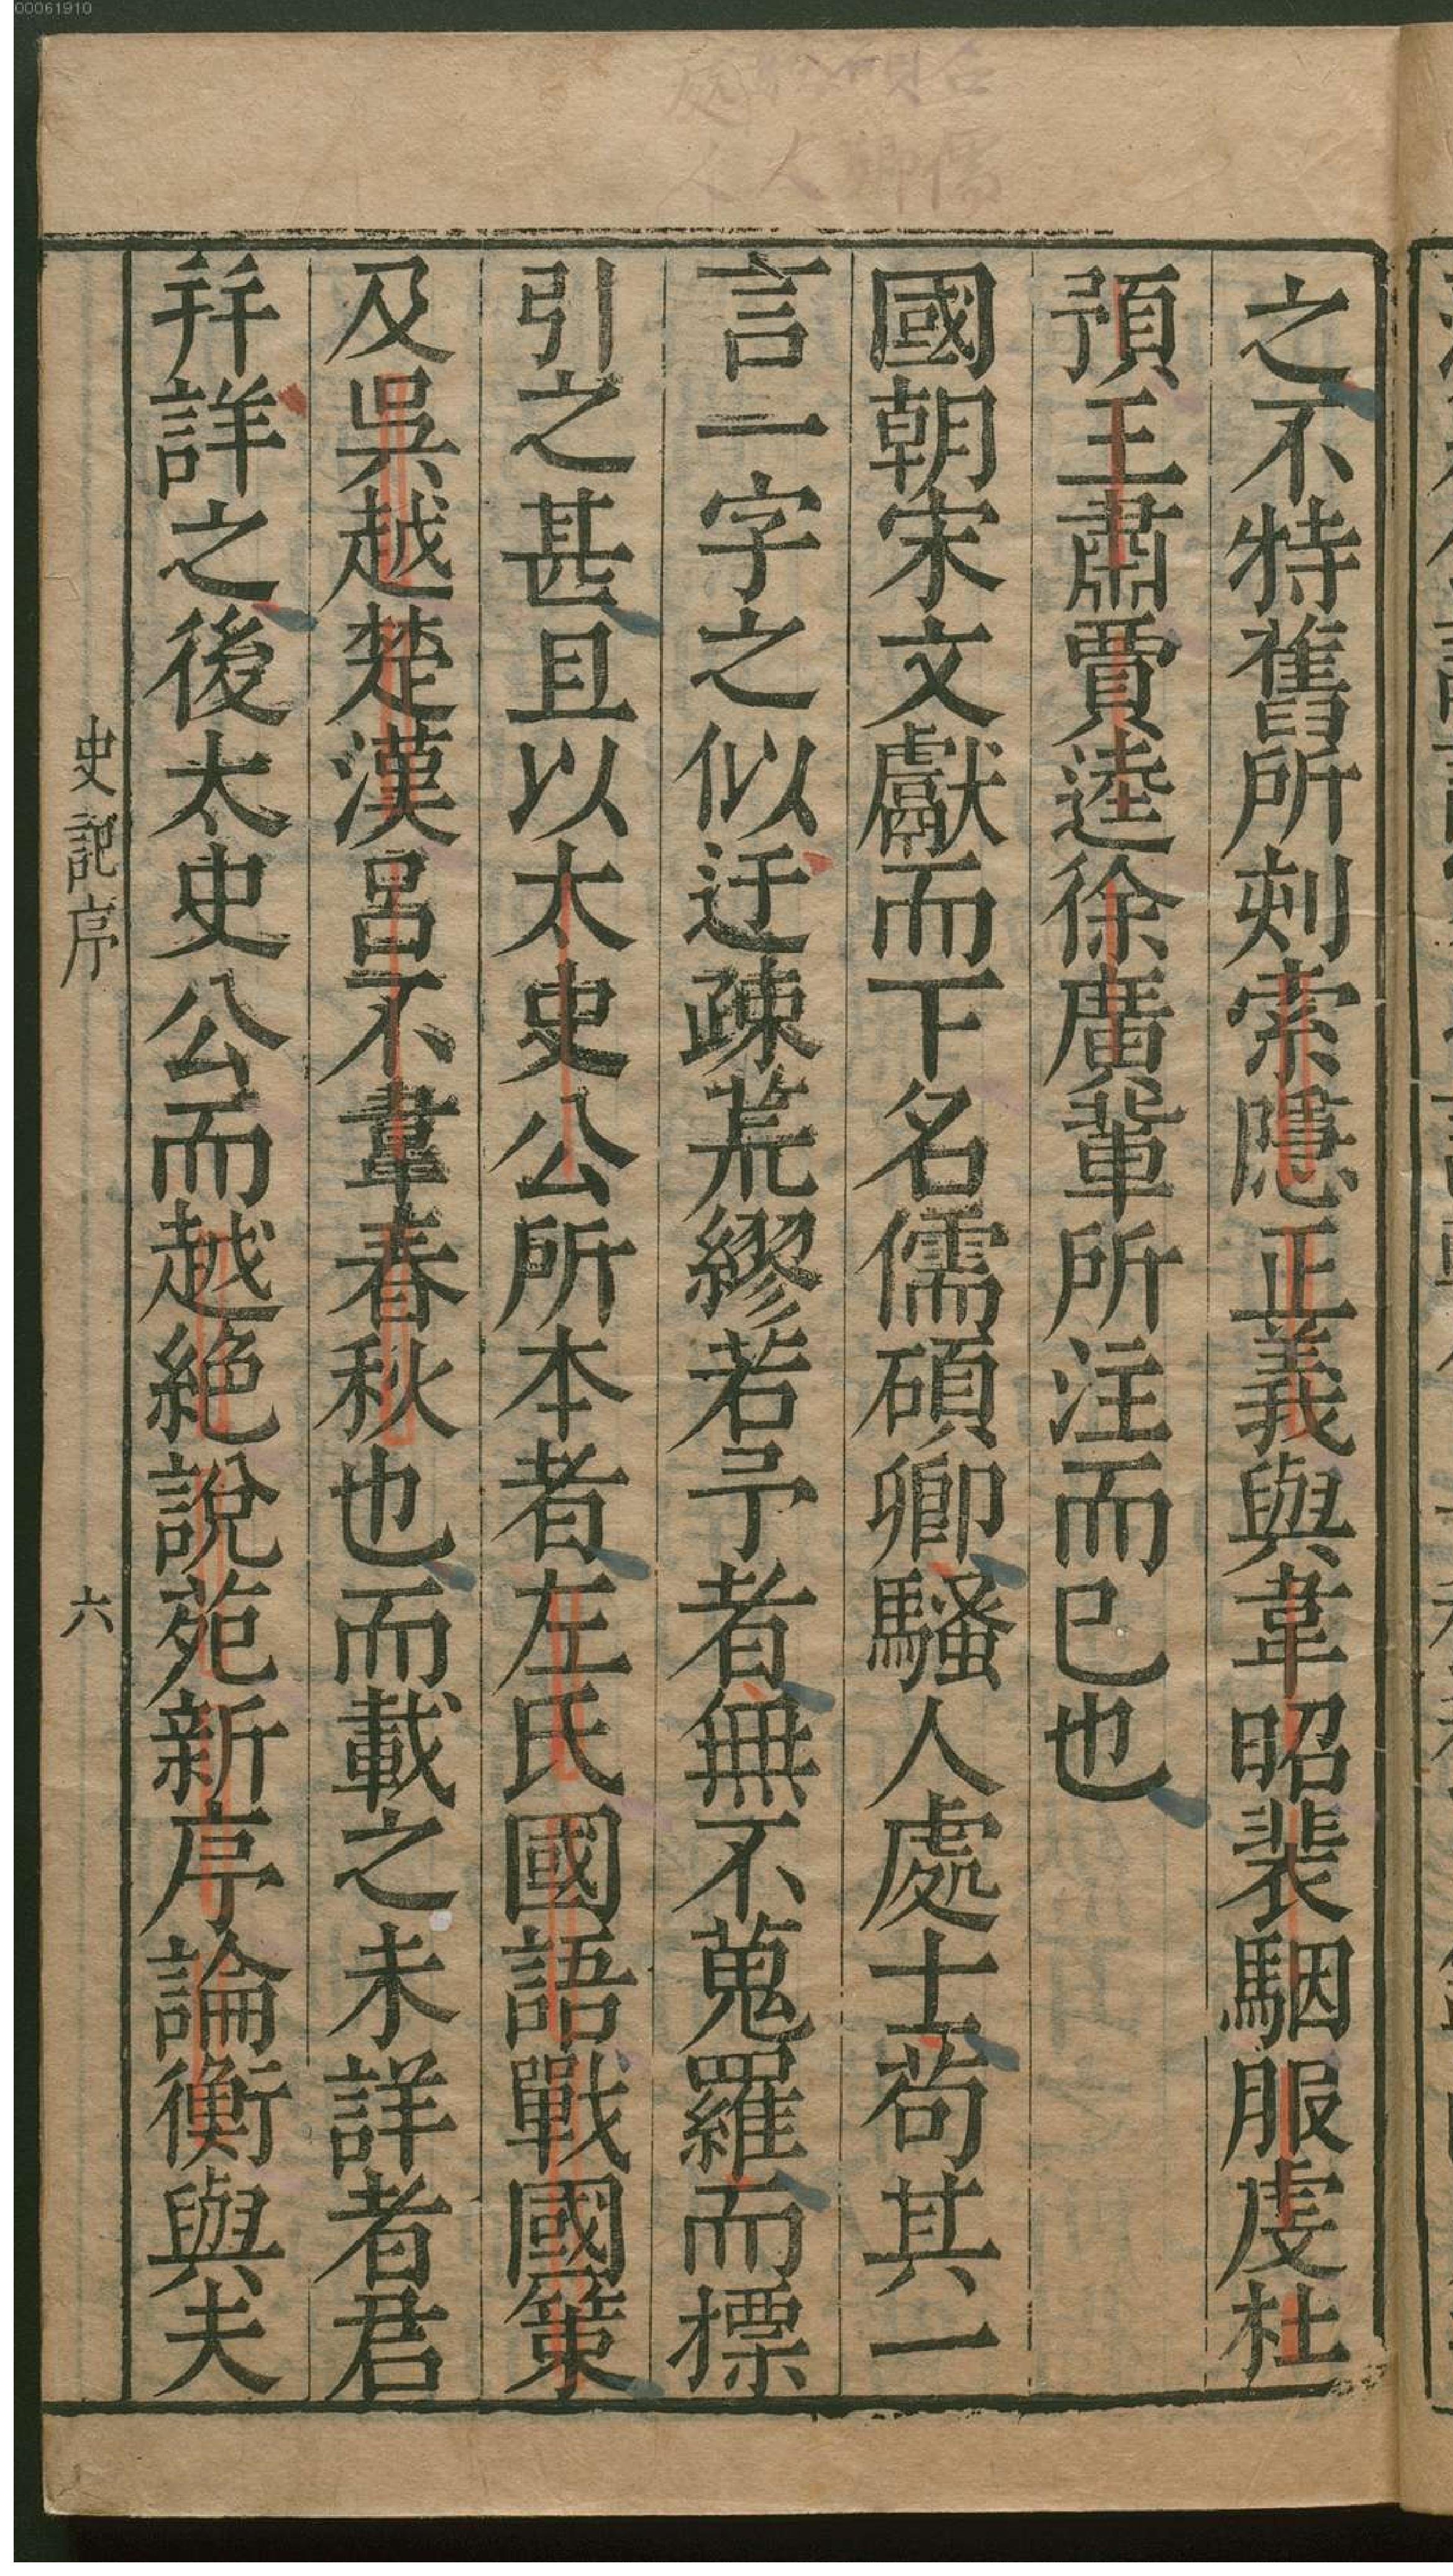 00061910
之不特舊所刻索隱正義與韋昭裴駰服虔杜
預王肅賈逵徐廣輩所注而已也
國朝宋文獻而下名儒碩卿騷人處士苟其一
言一字之似迂疎荒繆若予者無不蒐羅而標
引之甚且以太史公所本者左氏國語戰國策
及吳越楚漢呂不韋春秋也而載之未詳者君
并詳之後太史公而越絕說苑新序論衡與夫
史記序
六